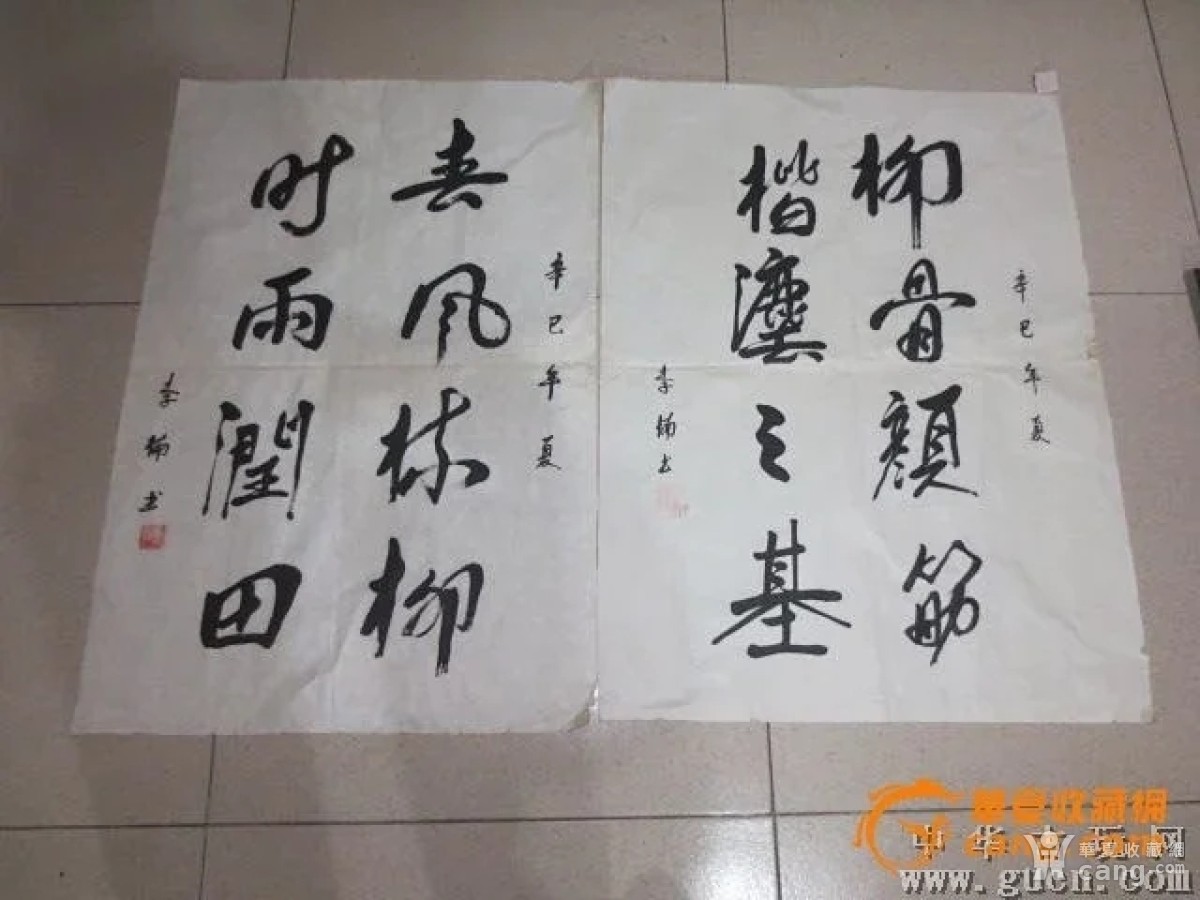 辛巳年夏
柳骨顏筋
楷灋之基
李楠书
辛巳年夏
春风梳柳
时雨潤田
李楠书
華夏收藏網
cang.com
中华古玩网
華夏收藏網
cang.com
www.gucn.com